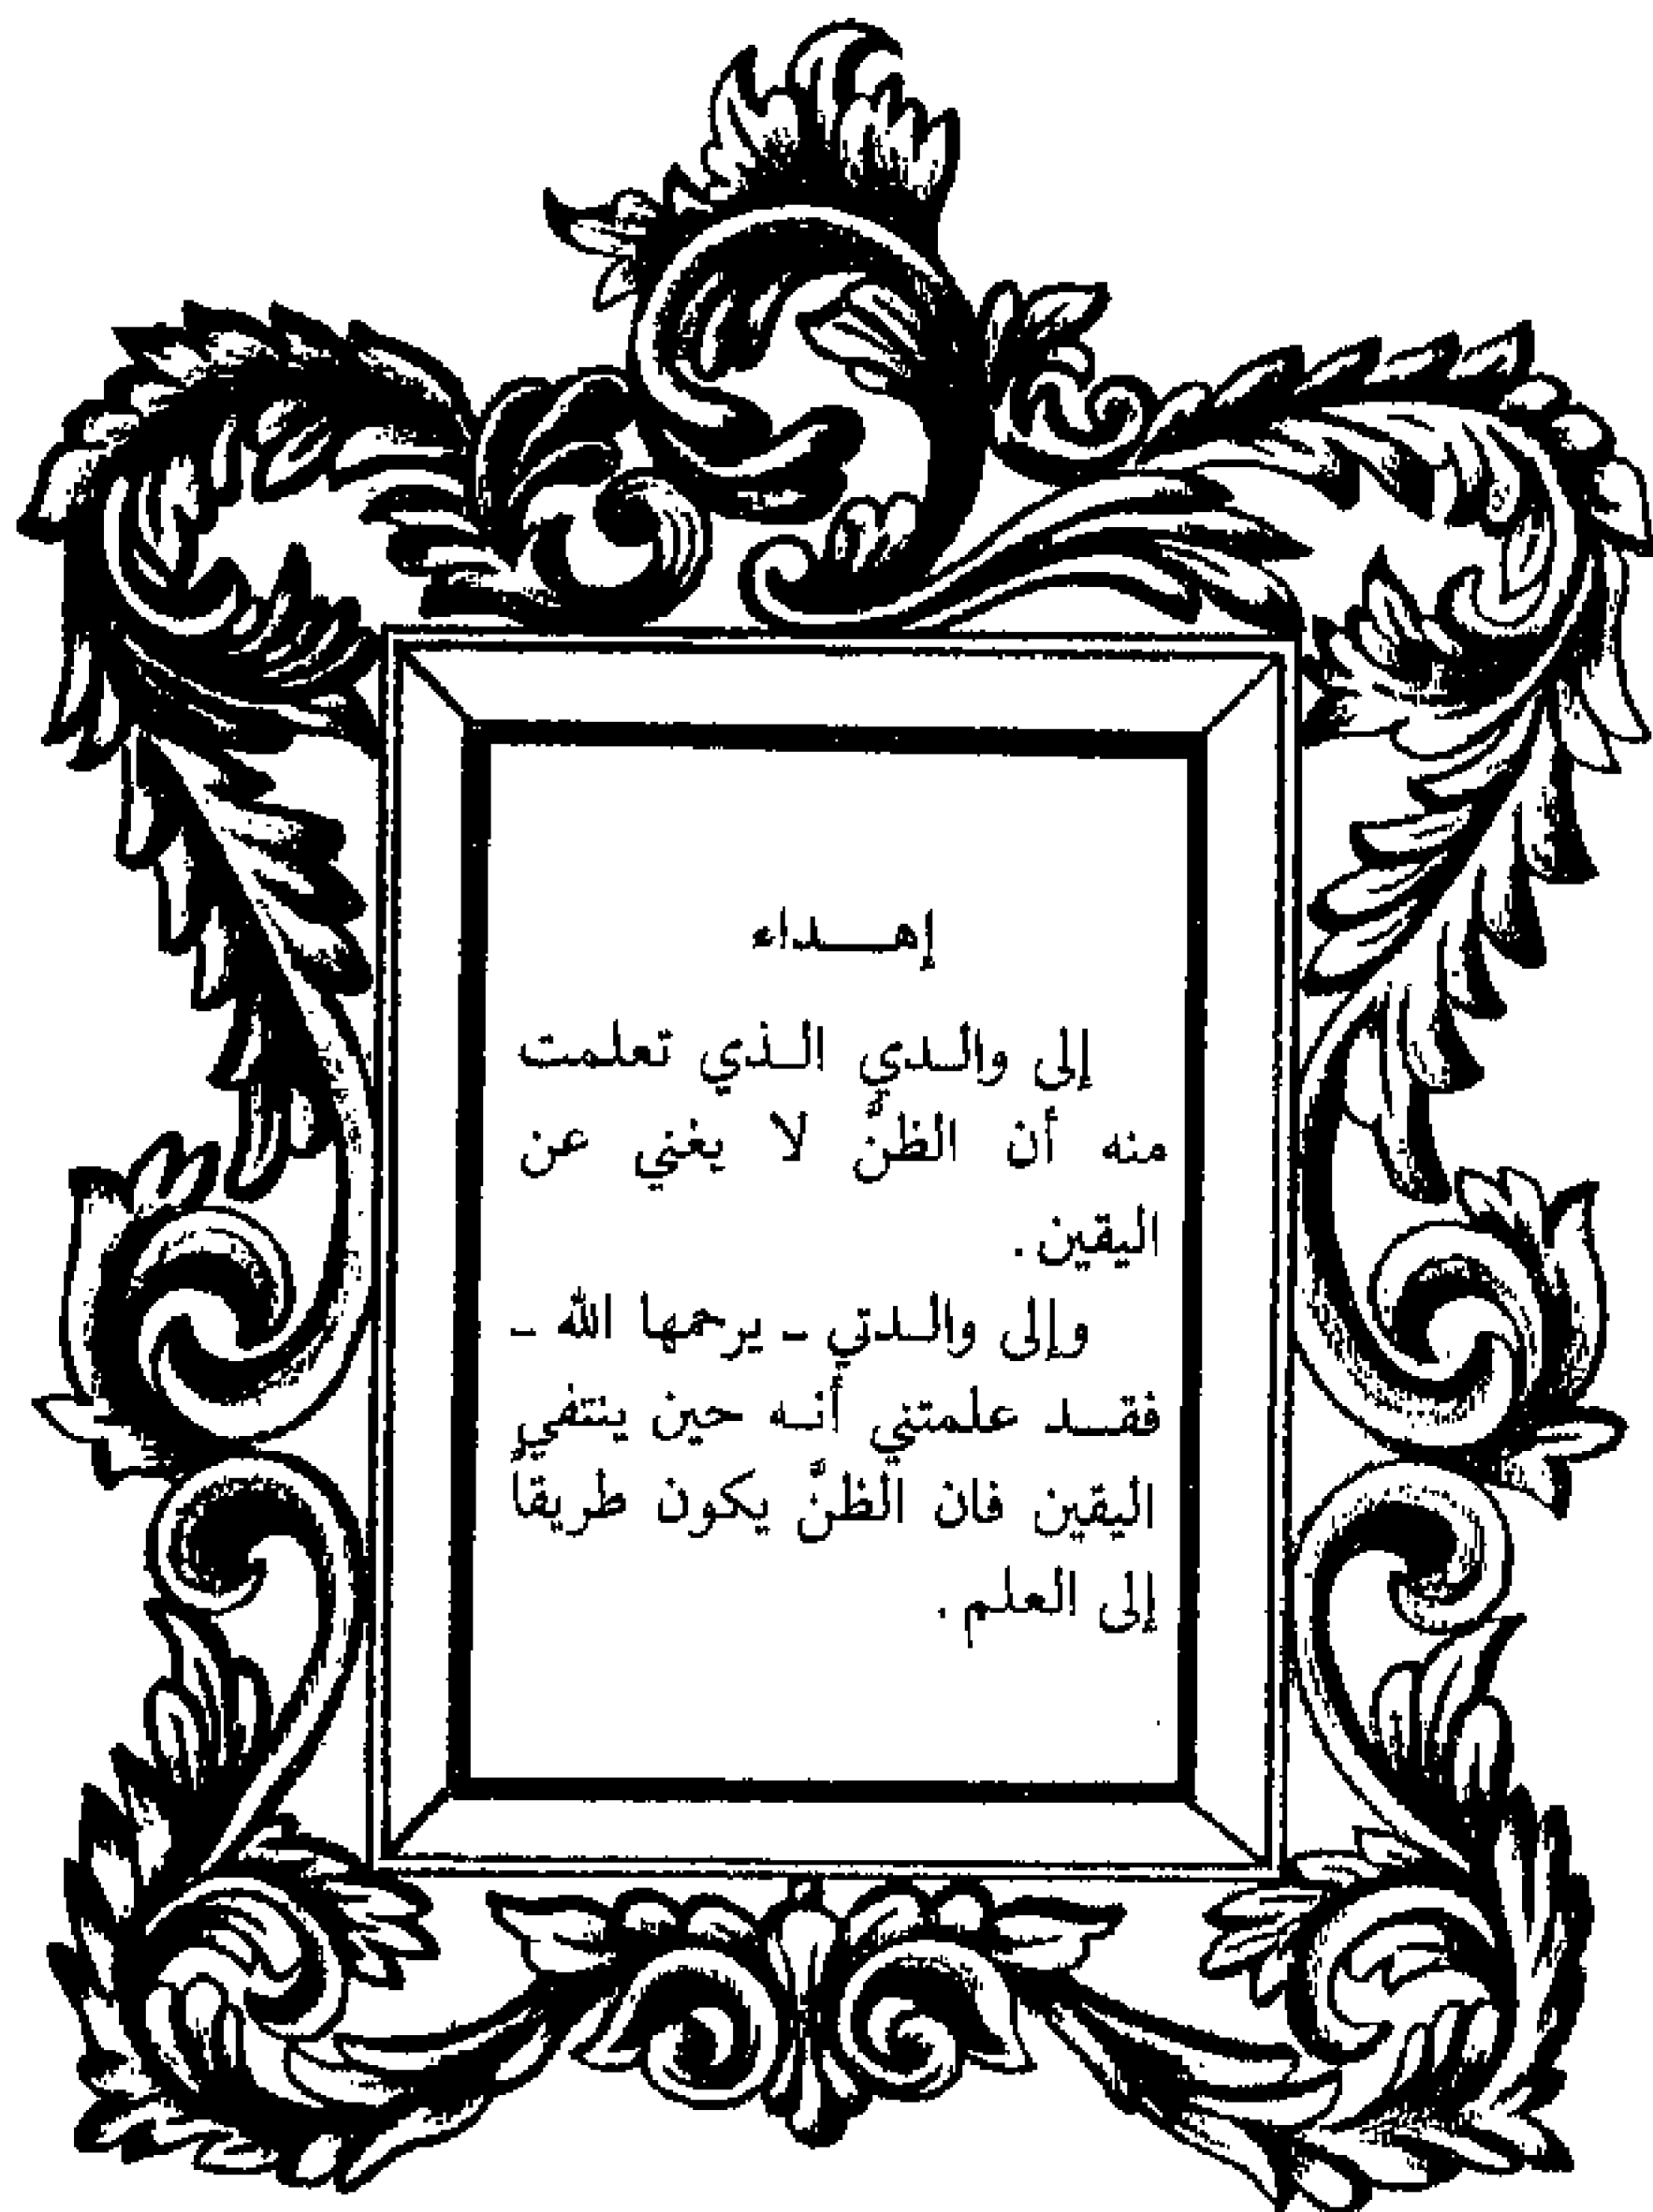 إهـــداء
إلى والـدي الـذي تعلمت
منه أن الظنَّ لا يغني عن
اليقين .
وإلى والـدتي - يرحمها الله -
فقـــد علمتني أنــه حين ينتفي
اليقين فان الظنَّ يكون طريقاً
إلى العلم .